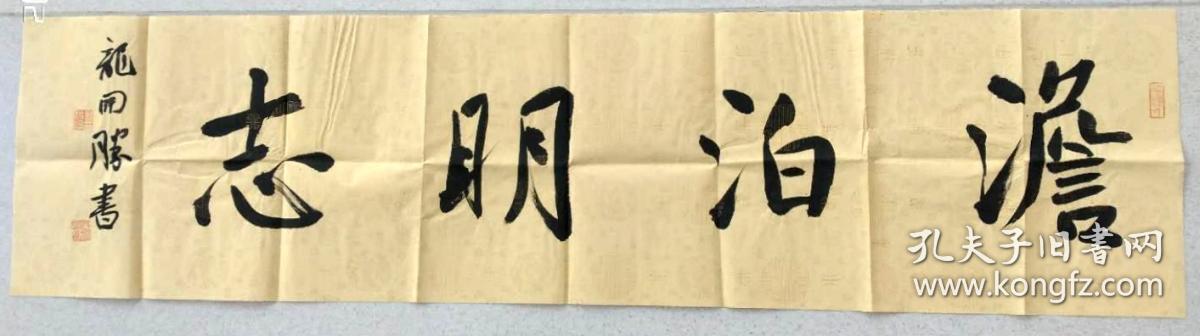 澹泊明志
龍開勝書
孔夫子旧书网
www.kongfz.com